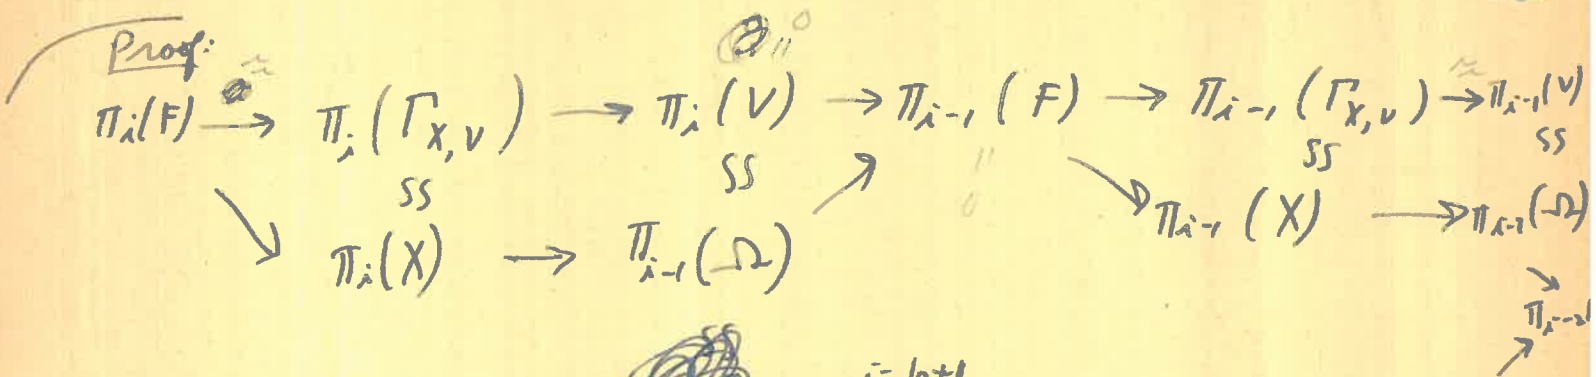 Proof:
≈ 0 ≈
π_i(F) → π_i(Γ_{X,V}) → π_i(V) → π_{i-1}(F) → π_{i-1}(Γ_{X,V}) → π_{i-1}(V)
SS SS = SS SS
↘ π_i(X) → π_{i-1}(Ω) ↗ 0 ↘ π_{i-1}(X) → π_{i-2}(Ω)
↘
π_{i-2}
↗